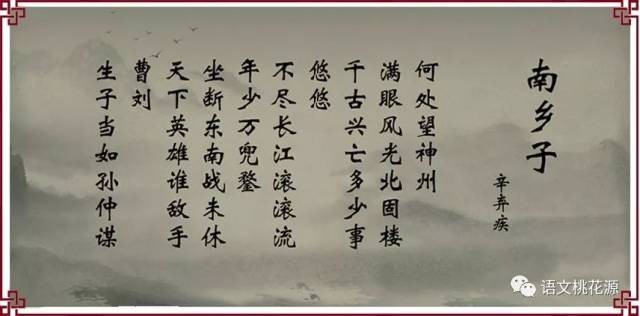 南乡子
辛弃疾
何处望神州
满眼风光北固楼
千古兴亡多少事
悠悠
不尽长江滚滚流
年少万兜鍪
坐断东南战未休
天下英雄谁敌手
曹刘
生子当如孙仲谋
语文桃花源